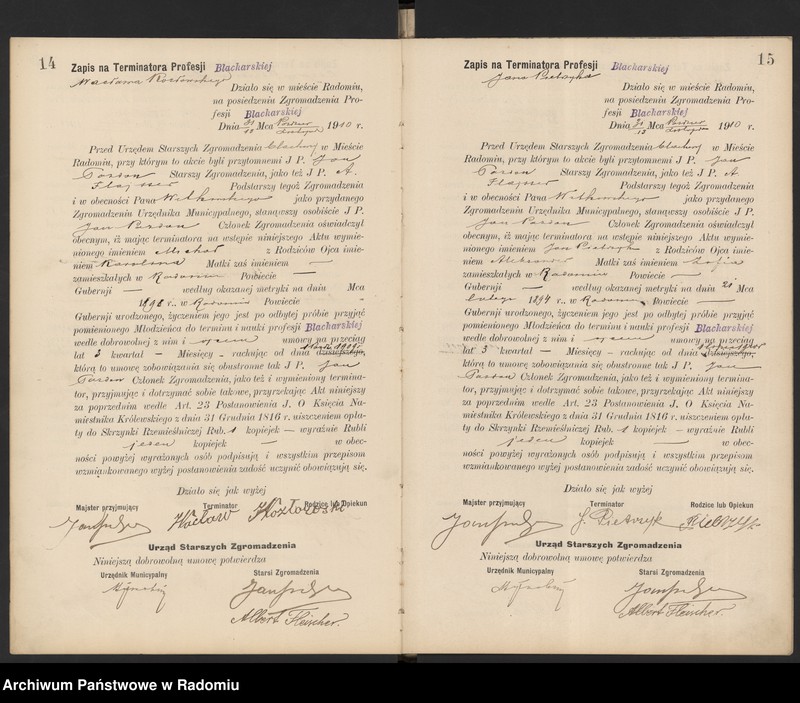 14
Zapis na Terminatora Profesji Blacharskiej
Wacława Kozłowskiego
Działo się w mieście Radomiu,
na posiedzeniu Zgromadzenia Pro-
fesji Blacharskiej
Dnia Mca 1910 r.
Przed Urzędem Starszych Zgromadzenia w Mieście
Radomiu, przy którym to akcie byli przytomnemi J P. Jan
Starszy Zgromadzenia, jako też J P. A.
Podstarszy tegoż Zgromadzenia
i w obecności Pana Witkowskiego jako przydanego
Zgromadzeniu Urzędnika Municypalnego, stanąwszy osobiście J P.
Jan Członek Zgromadzenia oświadczył
obecnym, iż mając terminatora na wstępie niniejszego Aktu wymie-
nionego imieniem z Rodziców Ojca imie-
niem Matki zaś imieniem —
zamieszkałych w Radomiu Powiecie —
Gubernji — według okazanej metryki na dniu Mca
1898 r., w Radomiu Powiecie "
Gubernji urodzonego, życzeniem jego jest po odbytej próbie przyjąć
pomienionego Młodzieńca do terminu i nauki profesji Blacharskiej
wedle dobrowolnej z nim i umowy na przeciąg
lat 3 kwartał — Miesięcy - rachując od dnia dzisiejszego,
którą to umowę zobowiązania się obustronne tak J P. Jan
Członek Zgromadzenia, jako też i wymieniony termina-
tor, przyjmując i dotrzymać sobie takowe, przyrzekając Akt niniejszy
za poprzednim wedle Art. 23 Postanowienia J. O Księcia Na-
miestnika Królewskiego z dnia 31 Grudnia 1816 r. uiszczeniem opła-
ty do Skrzynki Rzemieślniczej Rub. 1 kopiejek — wyraźnie Rubli
jeden kopiejek — w obec-
ności powyżej wyrażonych osób podpisują i wszystkim przepisom
wzmiankowanego wyżej postanowienia zadość uczynić obowiązują się.
Działo się jak wyżej
Majster przyjmujący Terminator Rodzice lub Opiekun
Wacław Kozłowski
Urząd Starszych Zgromadzenia
Niniejszą dobrowolną umowę potwierdza
Urzędnik Municypalny Starsi Zgromadzenia
Albert Fleischer.
15
Zapis na Terminatora Profesji Blacharskiej
Jana Pietrzyka
Działo się w mieście Radomiu,
na posiedzeniu Zgromadzenia Pro-
fesji Blacharskiej
Dnia Mca 1910 r.
Przed Urzędem Starszych Zgromadzenia w Mieście
Radomiu, przy którym to akcie byli przytomnemi J P. Jan
Starszy Zgromadzenia, jako też J P. A.
Podstarszy tegoż Zgromadzenia
i w obecności Pana Witkowskiego jako przydanego
Zgromadzeniu Urzędnika Municypalnego, stanąwszy osobiście J P.
Jan Członek Zgromadzenia oświadczył
obecnym, iż mając terminatora na wstępie niniejszego Aktu wymie-
nionego imieniem Jan Pietrzyk z Rodziców Ojca imie-
niem Aleksander Matki zaś imieniem Zofia
zamieszkałych w Radomiu Powiecie —
Gubernji — według okazanej metryki na dniu 21 Mca
Lutego 1894 r., w Radomiu, Powiecie —
Gubernji urodzonego, życzeniem jego jest po odbytej próbie przyjąć
pomienionego Młodzieńca do terminu i nauki profesji Blacharskiej
wedle dobrowolnej z nim i umowy na przeciąg
lat 3 kwartał — Miesięcy - rachując od dnia dzisiejszego,
którą to umowę zobowiązania się obustronne tak J P. Jan
Członek Zgromadzenia, jako też i wymieniony termina-
tor, przyjmując i dotrzymać sobie takowe, przyrzekając Akt niniejszy
za poprzednim wedle Art. 23 Postanowienia J. O Księcia Na-
miestnika Królewskiego z dnia 31 Grudnia 1816 r. uiszczeniem opła-
ty do Skrzynki Rzemieślniczej Rub. 1 kopiejek — wyraźnie Rubli
jeden kopiejek — w obec-
ności powyżej wyrażonych osób podpisują i wszystkim przepisom
wzmiankowanego wyżej postanowienia zadość uczynić obowiązują się.
Działo się jak wyżej
Majster przyjmujący Terminator Rodzice lub Opiekun
J. Pietrzyk
Urząd Starszych Zgromadzenia
Niniejszą dobrowolną umowę potwierdza
Urzędnik Municypalny Starsi Zgromadzenia
Albert Fleischer.
Archiwum Państwowe w Radomiu